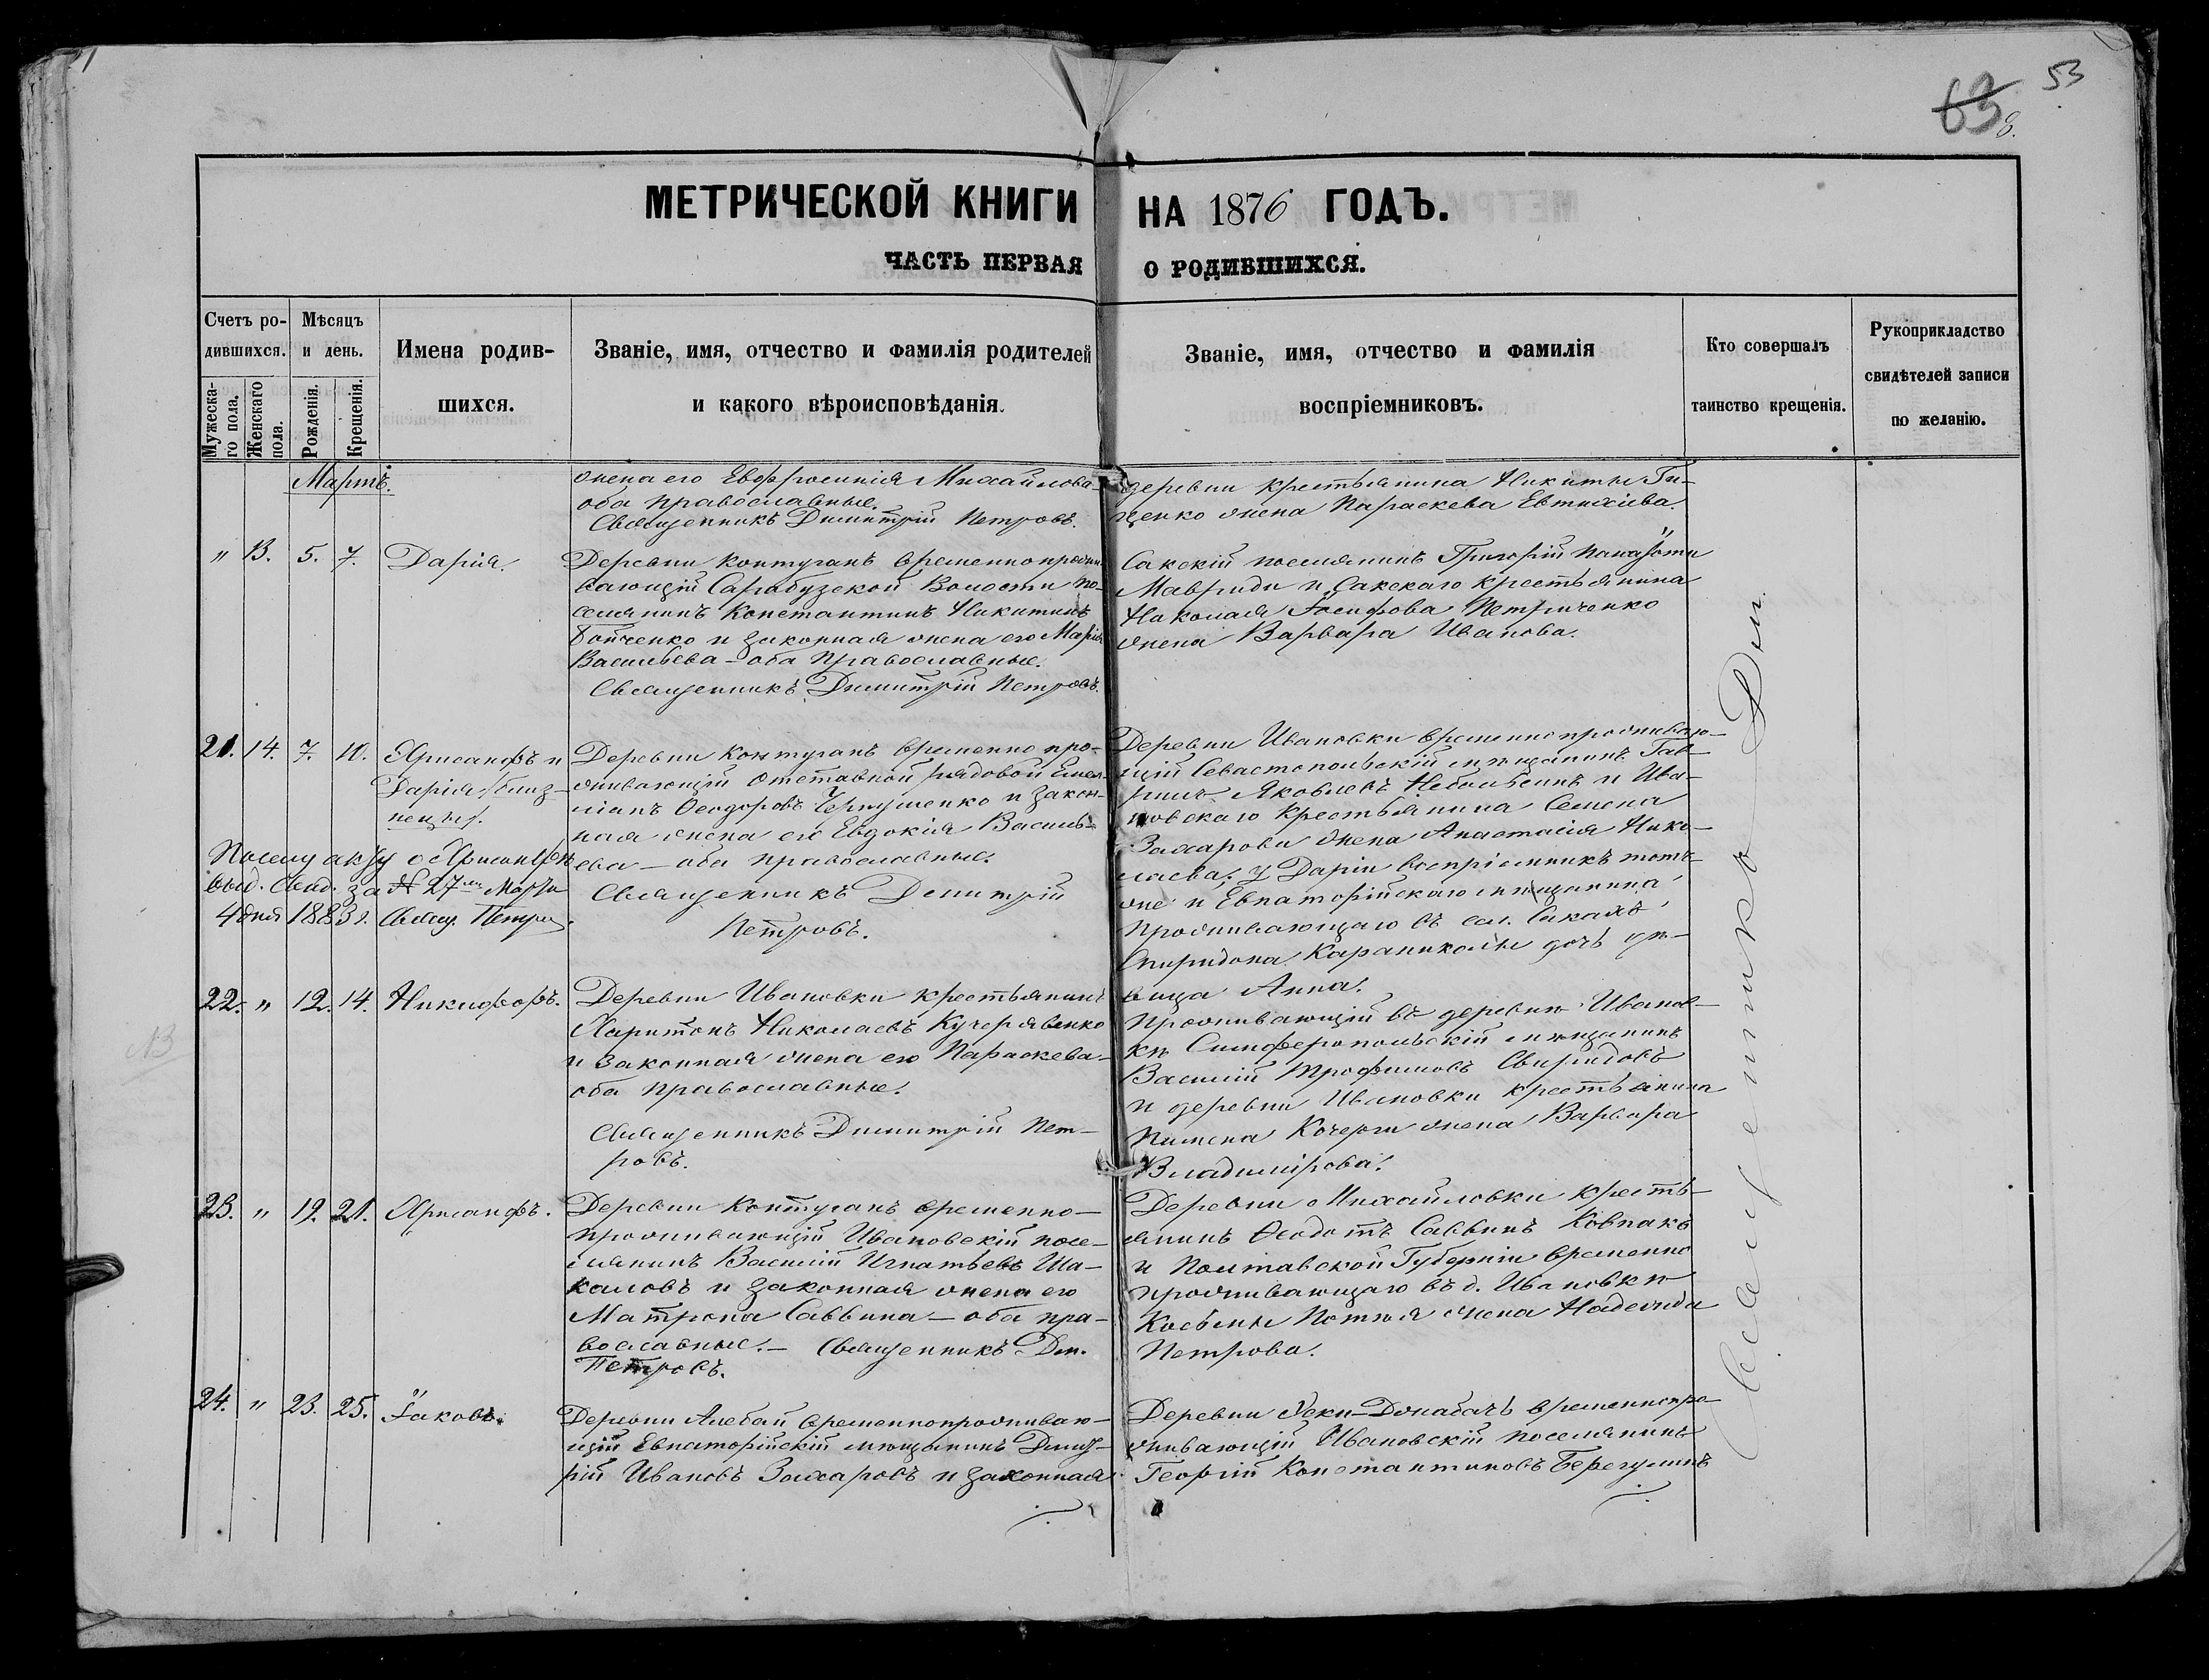 53
63
8.
МЕТРИЧЕСКОЙ КНИГИ НА 1876 ГОДЪ.
ЧАСТЬ ПЕРВАЯ О РОДИВШИХСЯ.
Счетъ ро-
дившихся.
Мужеска-
го пола.
Женскаго
пола.
Мѣсяцъ
и день.
Рожденія.
Крещенія.
Имена родив-
шихся.
Званіе, имя, отчество и фамилія родителей
и какого вѣроисповѣданія.
Званіе, имя, отчество и фамилія
воспріемниковъ.
Кто совершалъ
таинство крещенія.
Рукоприкладство
свидѣтелей записи
по желанію.
Мартъ.
жена его Евфросинія Михайлова-
оба православные.
Священникъ Димитрій Петровъ.
деревни крестьянина Никиты Ги-
ценко жена Параскева Евтихіева.
" 13. 5. 7. Дарія.
Деревни Контуганъ временнопрожи-
вающій Сарабузской Волости по-
селянинъ Константинъ Никитинъ
Бойченко и законная жена его Марія
Васильева - оба православные.
Священникъ Димитрій Петровъ.
Сакскій поселянинъ Григорій Панаіоти
Мавриди и Сакскаго крестьянина
Николая Іосифова Петриченко
жена Варвара Иванова.
21. 14. 7. 10. Хрисанфъ и
Дарія /близ-
нецы/.
Деревни Контуганъ временно про-
живающій отставной рядовой Емел-
ліанъ Ѳеодоровъ Чернушенко и закон-
ная жена его Евдокія Василь-
ева - оба православные.
Священникъ Димитрій
Петровъ.
Посему акту о Хрисанфѣ
выд. свид. за № 27мъ Марта
4 дня 1883 г. Свящ. Петров
Деревни Ивановки временно проживаю-
щій Севастопольскій мѣщанинъ Гав-
риилъ Яковлевъ Небольсинъ и Ива-
новскаго крестьянина Семена
Захарова жена Анастасія Нико-
лаева; у Даріи воспріемникъ тотъ-
же и Евпаторійскаго мѣщанина
проживающаго въ сел. Сакахъ
Спиридона Караниколы дочь дѣ-
вица Анна.
22. " 12. 14. Никифоръ.
Деревни Ивановки крестьянинъ
Харитонъ Николаевъ Кучерявенко
и законная жена его Параскева-
оба православные.
Священникъ Димитрій Пет-
ровъ.
Проживающій въ деревни Иванов-
кѣ Симферопольскій мѣщанинъ
Василій Трофимовъ Свиридовъ
и деревни Ивановки крестьянина
Пимена Кочерги жена Варвара
Владимірова.
23. " 19. 21. Хрисанфъ.
Деревни Контуганъ временно-
проживающій Ивановскій посе-
лянинъ Василій Игнатьевъ Ша-
каловъ и законная жена его
Матрона Саввина - оба пра-
вославные. - Священникъ Дим.
Петровъ.
Деревни Михайловки кресть-
янинъ Ѳеодотъ Саввинъ Ковпакъ
и Полтавской Губерніи временно
проживающаго въ д. Ивановкѣ
Косьмы жена Надежда
Петрова.
24. " 23. 25. Іаковъ.
Деревни Алебай временнопроживаю-
щій Евпаторійскій мѣщанинъ Димит-
рій Ивановъ Захаровъ и законная
Деревни временно про-
живающій Ивановскій поселянинъ
Георгій Константиновъ Берегулинъ
Священникъ Дим.